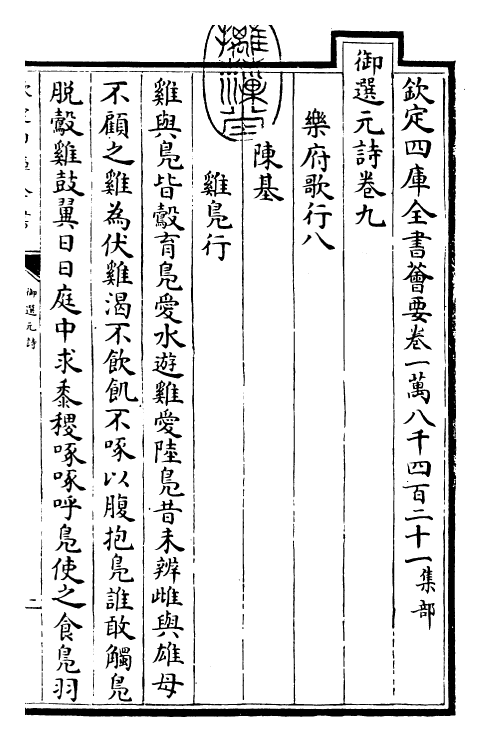 欽定四庫全書薈要卷一萬八千四百二十一集部
御選元詩卷九
樂府歌行八
陳基
雞鳧行
雞與鳧皆鷇育鳧愛水遊雞愛陸鳧昔未辨雌與雄母
不顧之雞為伏雞渴不飲飢不啄以腹抱鳧誰敢觸鳧
脫鷇雞鼓翼日日庭中求黍稷啄啄呼鳧使之食鳧羽
御選元詩